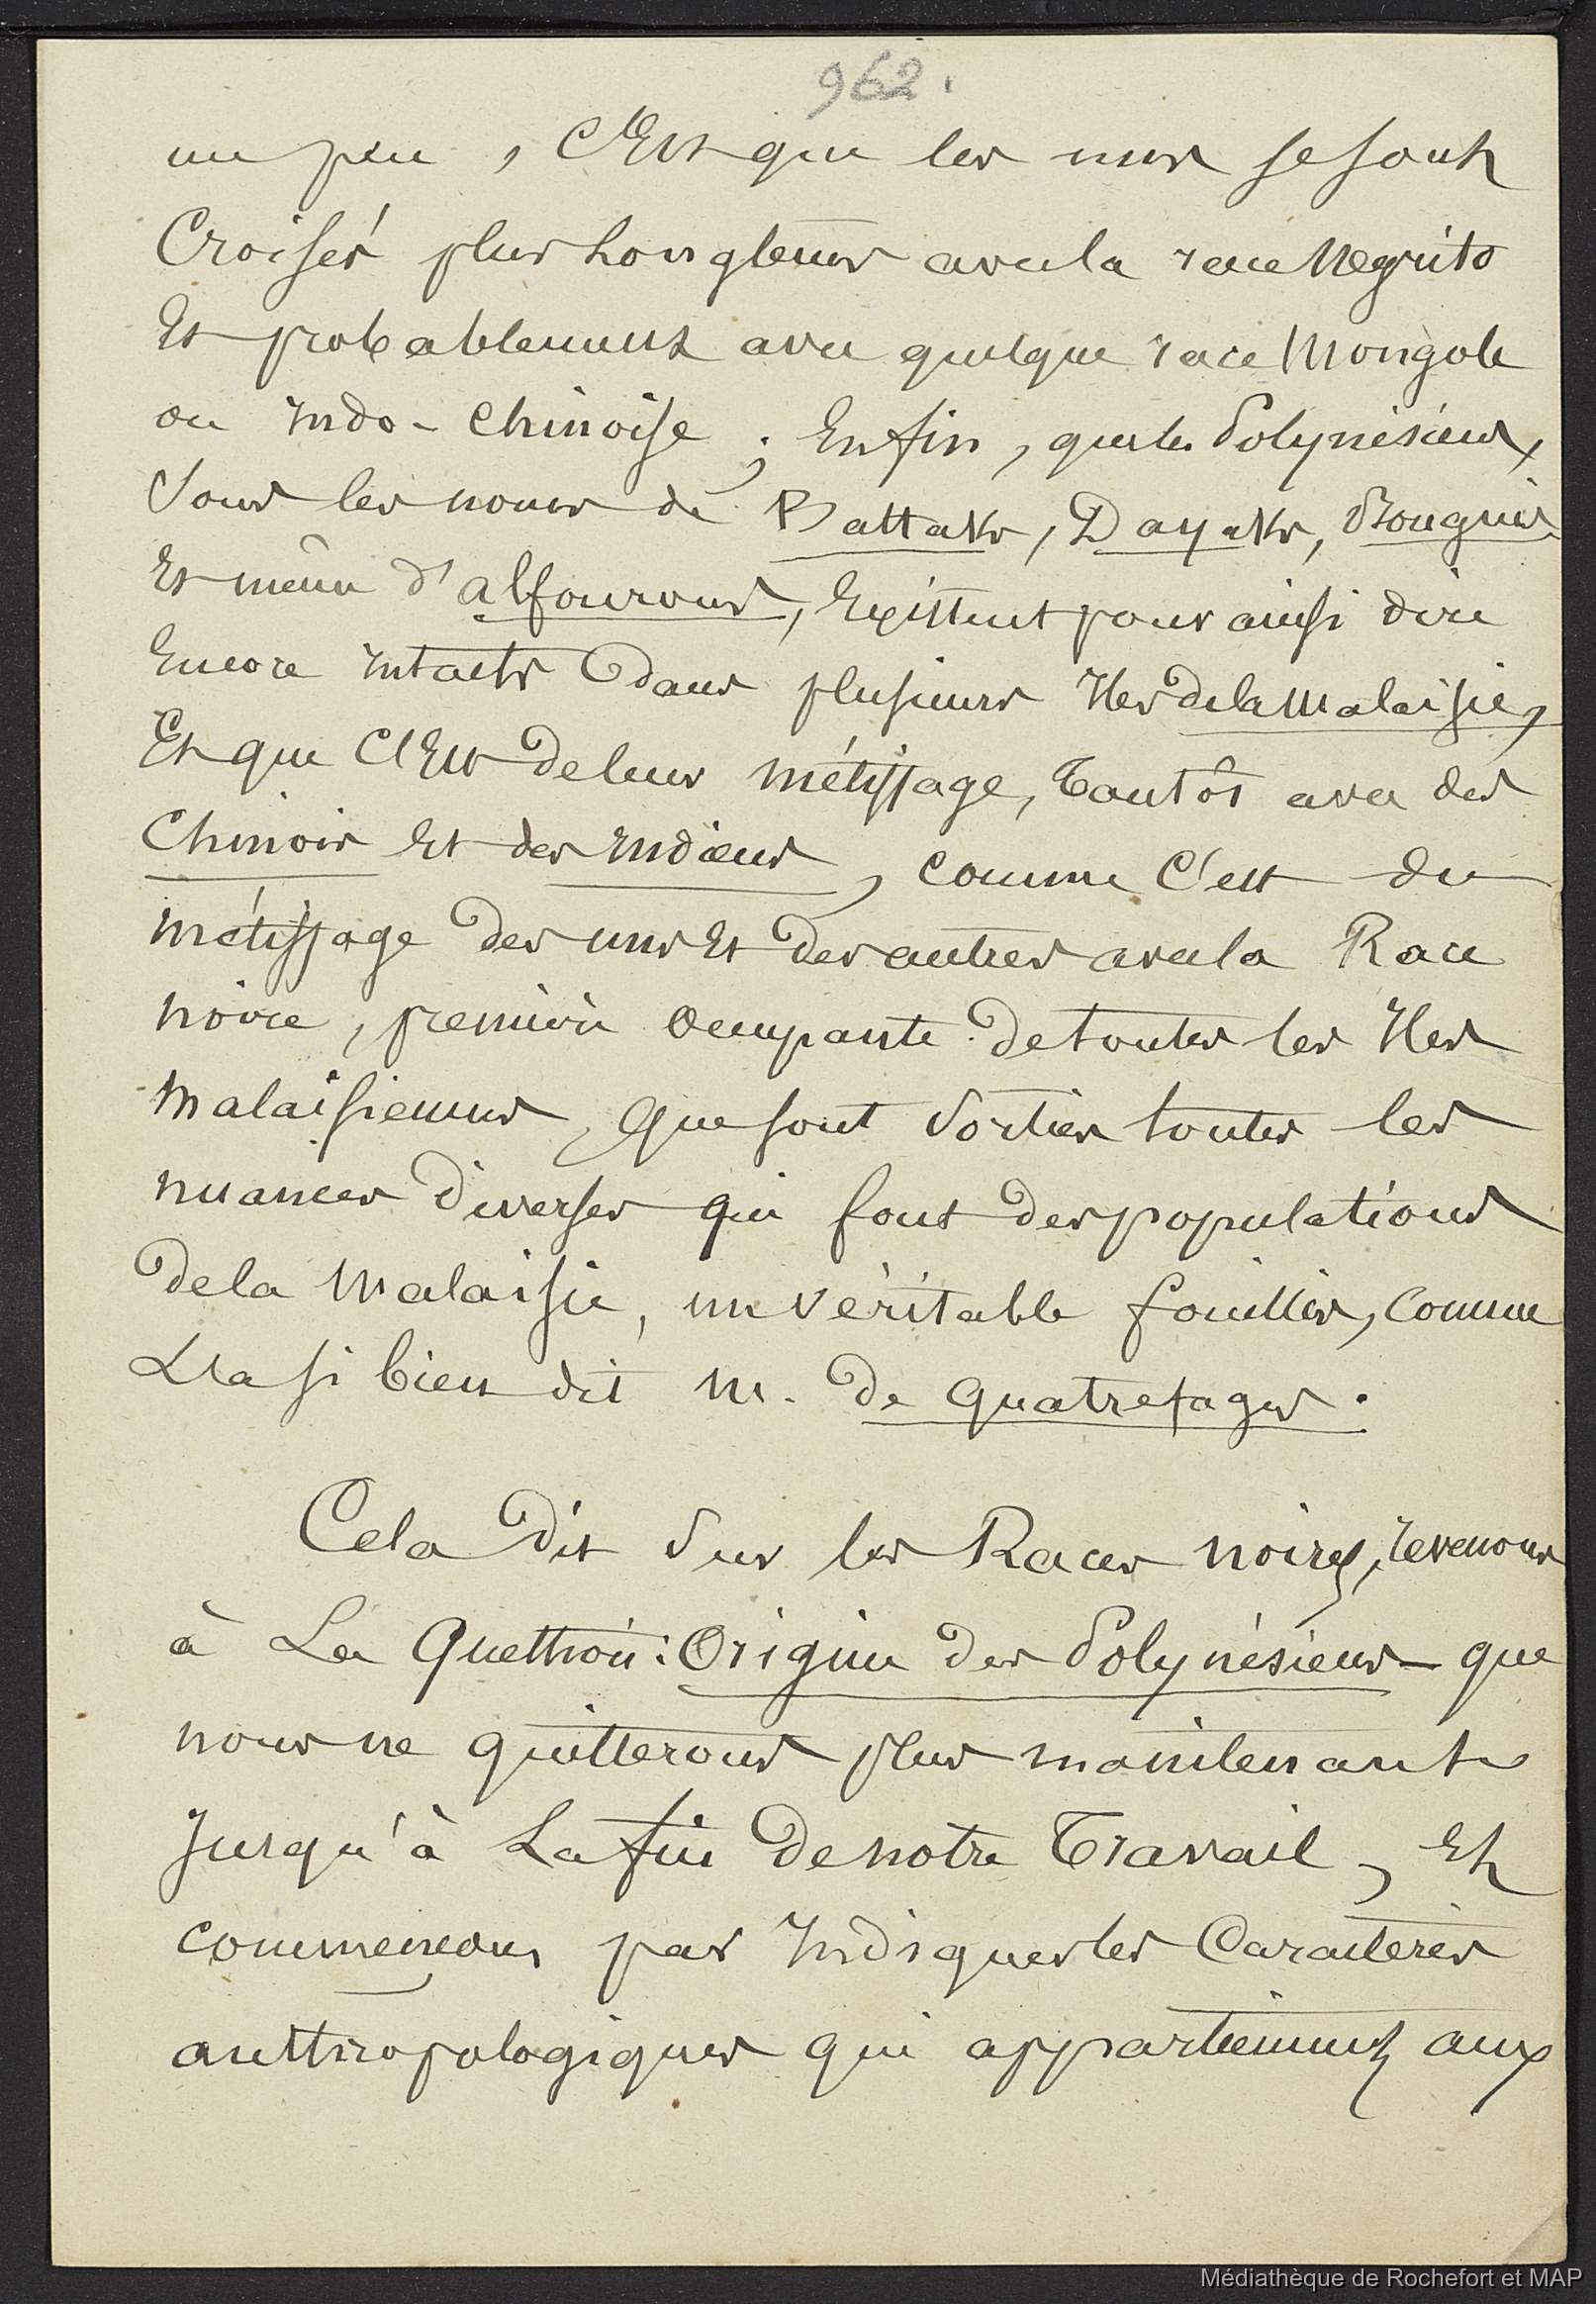 962.
un peu, c'Est que les uns se sont
Croisés plus Longtems avec la race Negrito
Et probablement avec quelque race Mongole
ou indo-chinoise ; Enfin, que les Polynésiens,
sous les noms de Battaks, Dayaks, Bouguis
Et même d'alfourous, Existent pour ainsi dire
Encore intacts dans plusieurs Iles de la Malaisie,
Et que c'Est de leur métissage, tantôt avec des
Chinois Et des indiens, comme c'est du
métissage des uns Et des autres avec la Race
noire, première occupante de toutes les Iles
malaisiennes, que sont sorties toutes les
nuances diverses qui font des populations
de la Malaisie, un véritable fouillis, comme
L'a si bien dit M. de Quatrefages.
Cela dit sur les Races noires, revenons
à La Question : Origine des Polynésiens – que
nous ne quitterons plus maintenant
jusqu'à La fin de notre Travail, Et
commençons par Indiquer les Caractères
anthropologiques qui appartiennent aux
Médiathèque de Rochefort et MAP